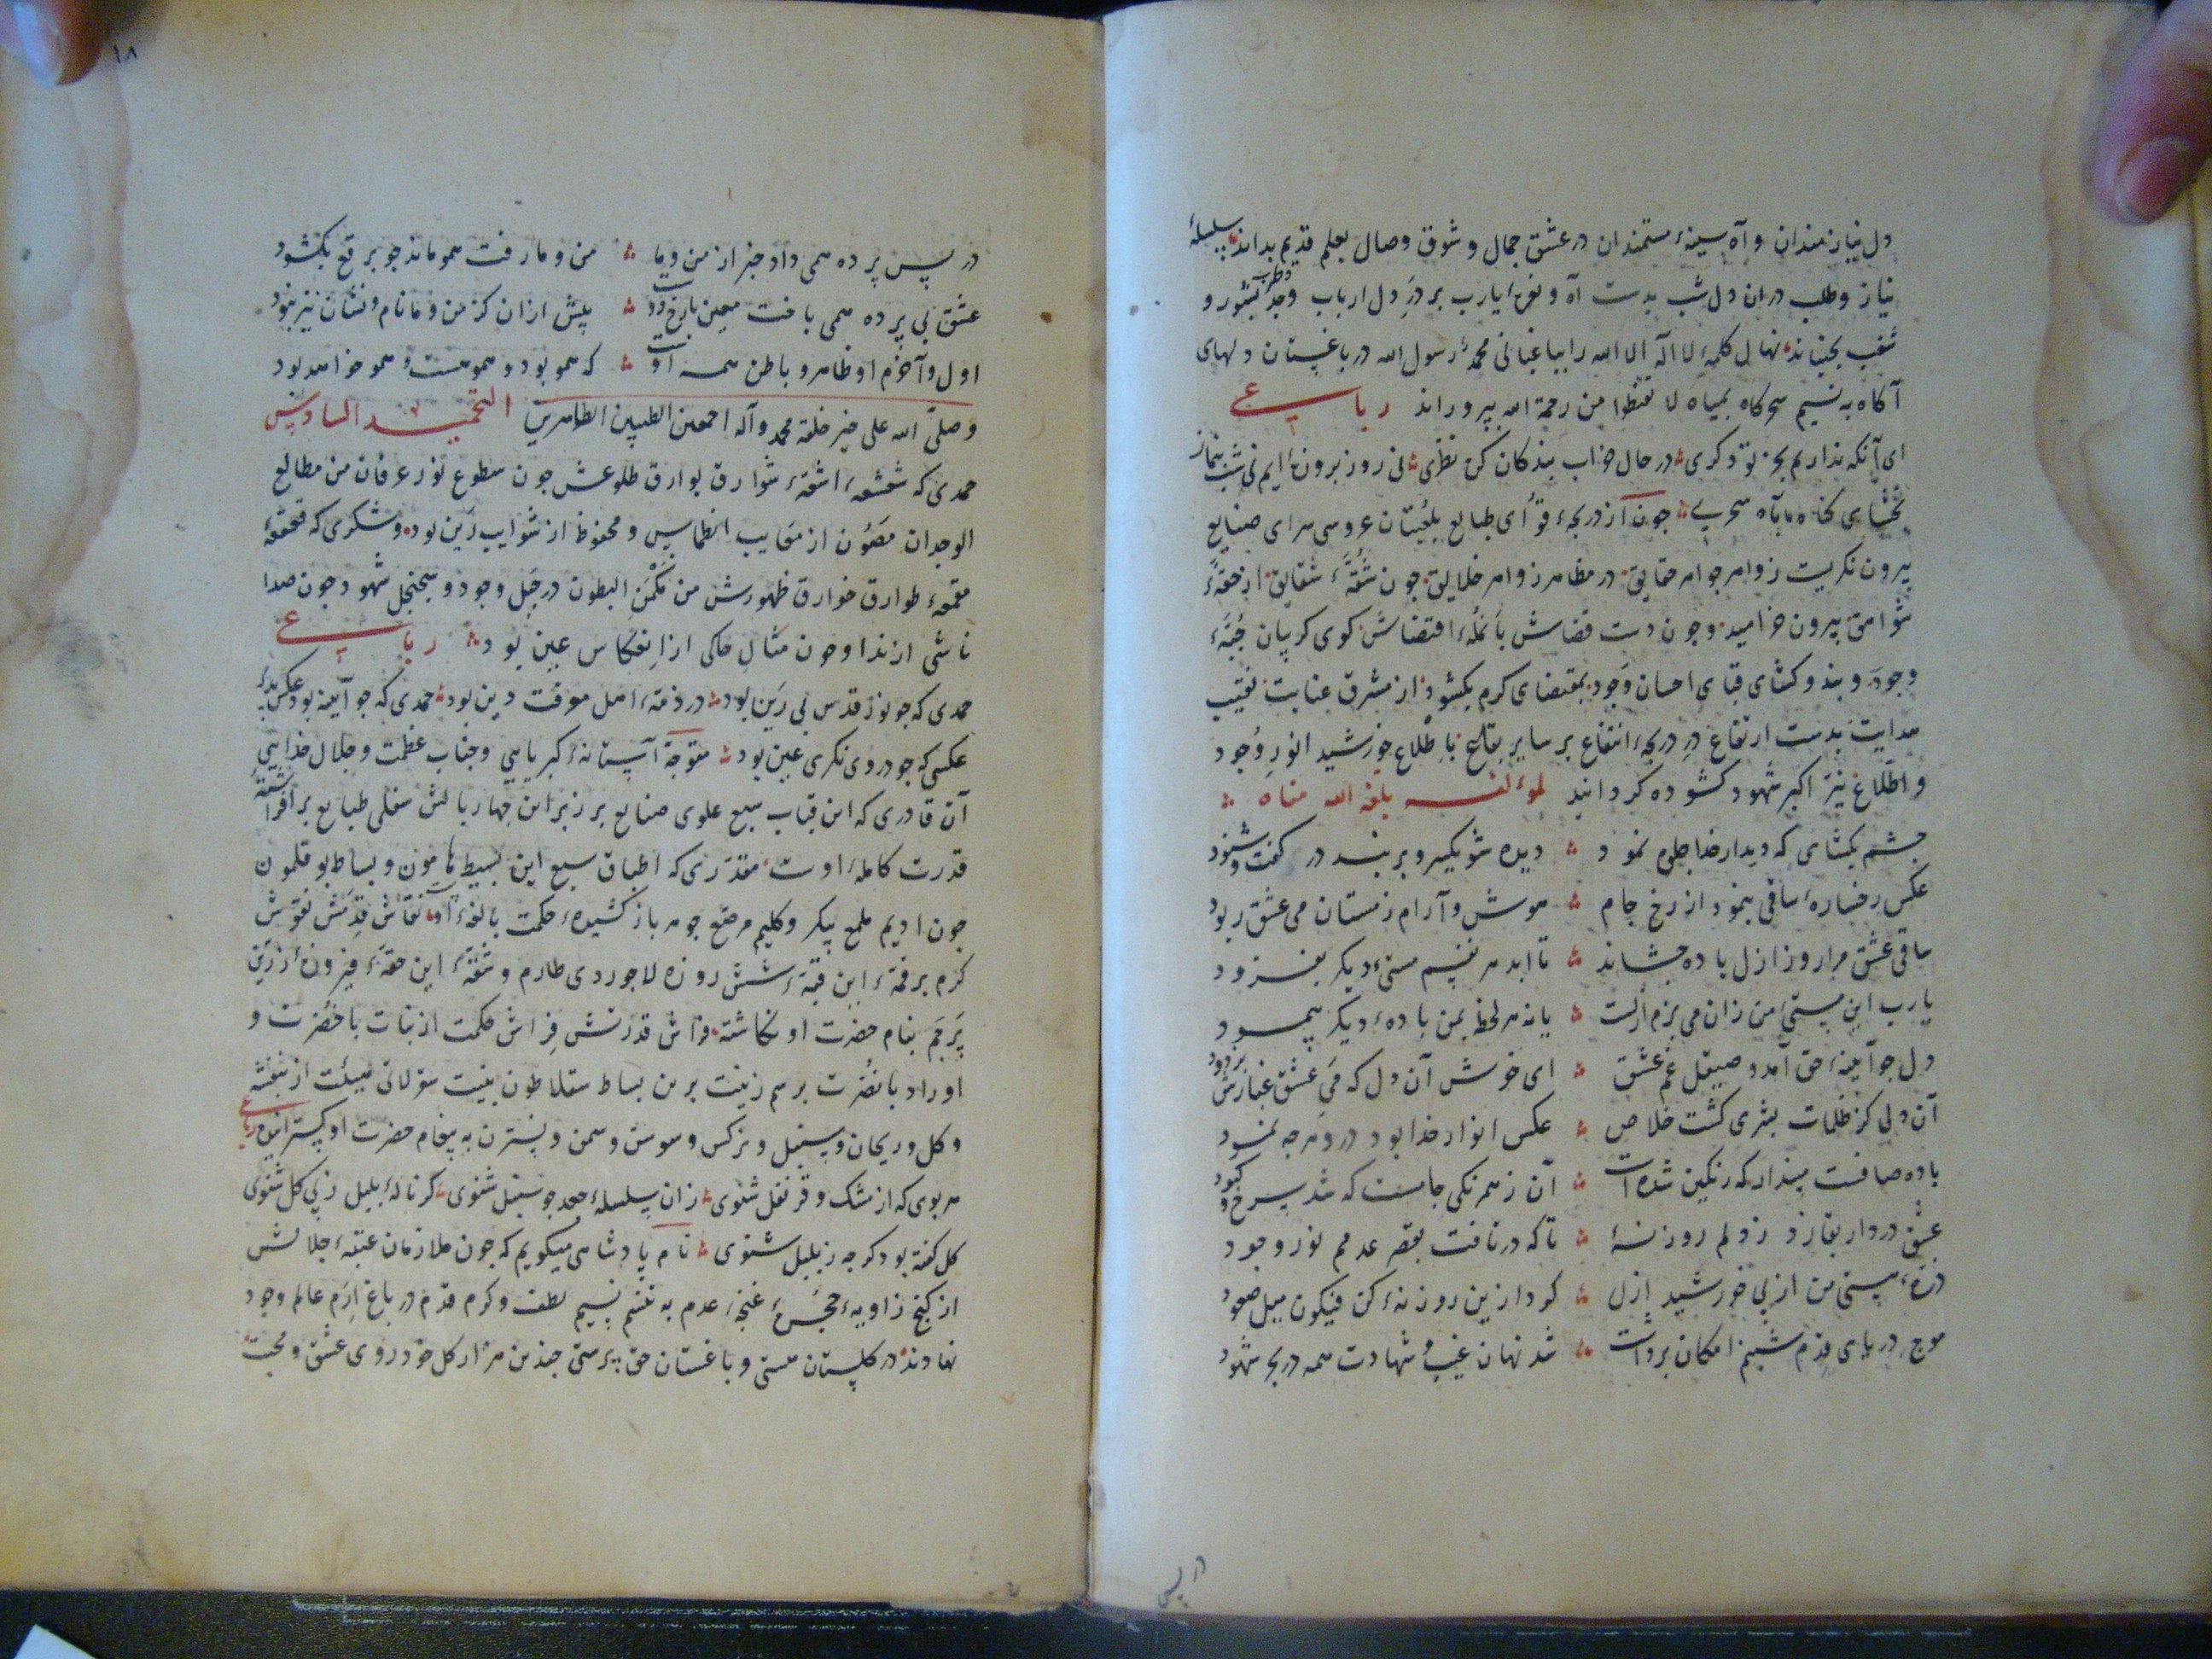 دل نیازمندان و آه سینهٔ مستمندان در عشق جمال و شوق وصال بعلم قدیم بداند بسلسلهٔ
نیاز و طلب در ان دل شب بدست آه و نعرهٔ یارب بر درِ دل ارباب وجد و طرب بشور و
شغب بجنباند نهال کلمهٔ لا اله الا الله را بباغبانی محمد رسول الله در باغستان دلهای
آکاه به نسیم سحرکاه بمیاه لا تقنطوا من رحمة الله بپروراند رباعی
ای آنکه نداریم بجز تو دکری در حال خراب بندکان کن نظری نی روز برون ایم نی شب نماز
بخشای کناه ما بآه سحری چون از دریجهٔ قوای طبایع بلعبتان عروسی سرای صنایع
بیرون نکریست زواهر جواهر حقایق در مظاهر زواهر خلایق چون شقهٔ شقایق از حقهٔ
شواهق بیرون خرامید و چون دست قضاش بانملهٔ اقتضاش کوی کریبان جبهٔ
وجود و بند و کشای قبای احسان و جود بمقتضای کرم بکشود از مشرق عنایت نقیب
هدایت بدست ارتفاع در دریجهٔ انتفاع بر سایر بقاع باطلاع خورشید انور وجود
و اطلاع نیر اکبر شهود کشوده کردانید لمؤلفه بلغه الله مناه
چشم بکشای که دیدار خدا جلوه نمود دیده شو یکسر و بربند در کفت و شنود
عکس رخسارهٔ ساقی بنمود از رخ جام هوش و آرام ز مستان می عشق ربود
ساقی عشق مرا روز ازل باده چشاند تا ابد هر نفسم مستی دیکر بفزود
یارب این مستی من زان می بزم ازلست یا نه هر لحظه بمن بادهٔ دیکر پیمود
دل چو آیینهٔ حق آمد و صیقل غم عشق ای خوش آن دل که می عشق غبارش بزدود
آن دلی کز ظلمات بشری کشت خلاص عکس انوار خدا بود درو هر چه نمود
باده صافست مپندار که رنکین شده است آن ز همرنکی جامست که شد سرخ و کبود
عشق در دار بقا زد ز دلم روزنهٔ تا که در تافت بقصر عدمم نور وجود
ذرهٔ هستی من از پی خورشید ازل کرد ازین روزنهٔ کن فیکون میل صعود
موج دریای قدم شبنم امکان برداشت شد نهان غیب و شهادت همه در بحر شهود
در پس
١٨
در پس پرده همی داد خبر از من و ما من و ما رفت همو ماند چو برقع بکشود
عشق بی پرده همی بافت معین با رخ دوست پیش از ان کز من و ما نام و نشان نیز نبود
اول و آخرم او ظاهر و باطن همه اوست که همو بود و همو هست و همو خواهد بود
و صلی الله علی خیر خلقه محمد و آله اجمعین الطیبین الطاهرین التحمید السادس
حمدی که شعشعهٔ اشعهٔ شوارق بوارق طلوعش چون سطوع نور عرفان من مطالع
الوجدان مصون از معایب انطماس و محفوظ از شوایب رَین بود و شکری که قعقعهٔ
مقمعهٔ طوارق خوارق ظهورش من مکمن البطون در جبل وجود و سجنجل شهود چون صدا
ناشی از ندا و چون مثال حاکی از انعکاس عین بود رباعی
حمدی که چو نور قدس بی رین بود در ذمهٔ اهل معرفت دین بود حمدی که چو آیینه بود عکس پذیر
عکسی که چو در وی نکری عین بود متوجه آستانهٔ کبریایی و جناب عظمت و جلال خدایی
آن قادری که این قباب سبع علوی صنایع بر زبر این چهار بالش سفلی طبایع بر افراشتهٔ
قدرت کاملهٔ اوست مقدری که اطباق سبع این بسیط هامون و بساط بوقلمون
چون ادیم ملمع پیکر و کلیم مرصع جوهر باز کشیدهٔ حکمت بالغهٔ اوست نقاش قدمش نقوش
کرم بر قمهٔ این قبهٔ شش روزهٔ لاجوردی طارم و شقهٔ این حقهٔ فیروزهٔ زرین
پرچم بنام حضرت او نکاشته فراش قدرتش فراش حکمت از نبات با خضرت و
اوراد با نضرت برسم زینت برین بساط سقلاطون بنیت سقرلاتی هیئت از بنفشه
و کل و ریحان و سنبل و نرکس و سوسن و سمن و نسترن به پیغام حضرت او کسترانیده رباعی
هر بوی که از مشک و قرنفل شنوی زان سلسلهٔ جعد چو سنبل شنوی کر نالهٔ بلبل ز پی کل شنوی
کل کفته بود کرچه ز بلبل شنوی نام پادشاهی میکویم که چون ملازمان عتبهٔ جلالش
از کنج زاویهٔ حجرهٔ غنچهٔ عدم به تنسم نسیم لطف و کرم قدم در باغ ارم عالم وجود
نهادند در کلستان هستی و باغستان حق پرستی چندین هزار کل خودروی عشق و محبت